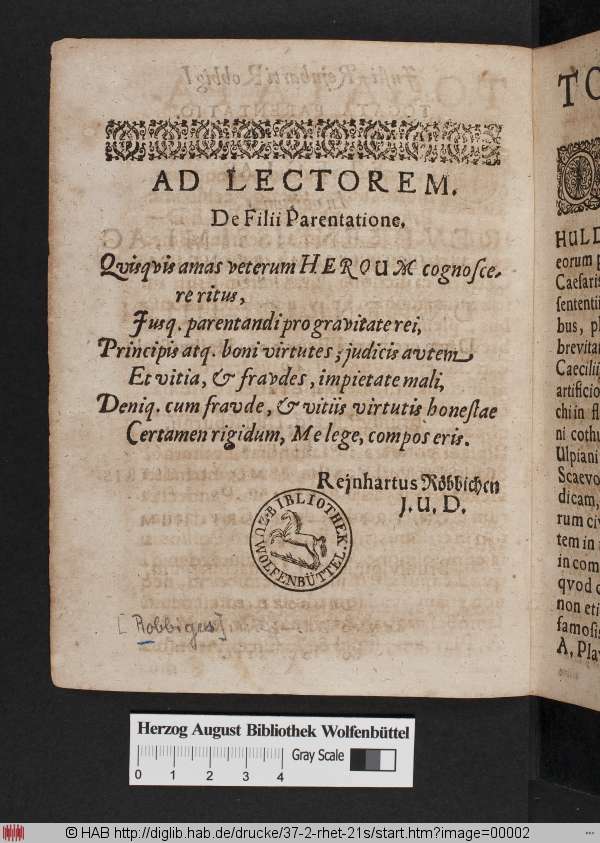 AD LECTOREM.
De Filii Parentatione.
Qvisqvis amas veterum HEROUM cognosce-
re ritus,
Jusq. parentandi pro gravitate rei,
Principis atq. boni virtutes; judicis avtem
Et vitia, & fravdes, impietate mali,
Deniq. cum fravde, & vitiis virtutis honestae
Certamen rigidum, Me lege, compos eris.
Rejnhartus Röbbichen
J. U. D.
BIBLIOTHEK ZU WOLFENBÜTTEL.
[Robbiges]
TO
HULD
eorum p
Caesaris
sententii
bus, pl
brevitan
Caecilii
artificio
chi in fl
ni cothu
Ulpiani
Scaevo
dicam,
rum civ
tem in
in com
qvod c
non eti
famosis
A. Plav
Herzog August Bibliothek Wolfenbüttel
Gray Scale
0 1 2 3 4
© HAB http://diglib.hab.de/drucke/37-2-rhet-21s/start.htm?image=00002